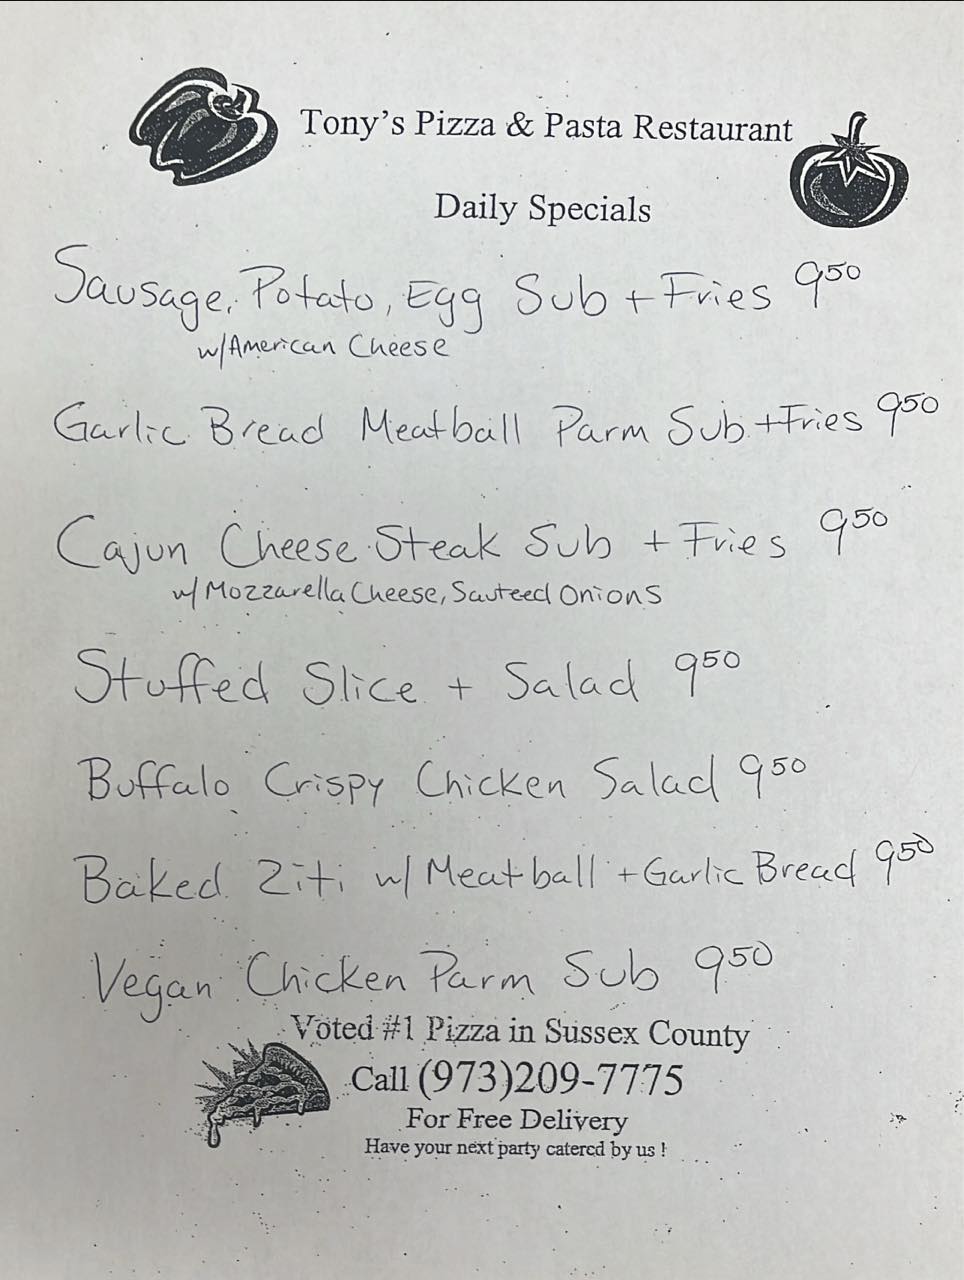 Tony's Pizza & Pasta Restaurant
Daily Specials
Sausage, Potato, Egg Sub + Fries 950
w/American Cheese
Garlic Bread Meatball Parm Sub + Fries 950
Cajun Cheese Steak Sub + Fries 950
w/Mozzarella Cheese, Sauteed Onions
Stuffed Slice + Salad 950
Buffalo Crispy Chicken Salad 950
Baked Ziti w/ Meatball + Garlic Bread 950
Vegan Chicken Parm Sub 950
Voted #1 Pizza in Sussex County
Call (973)209-7775
For Free Delivery
Have your next party catered by us !